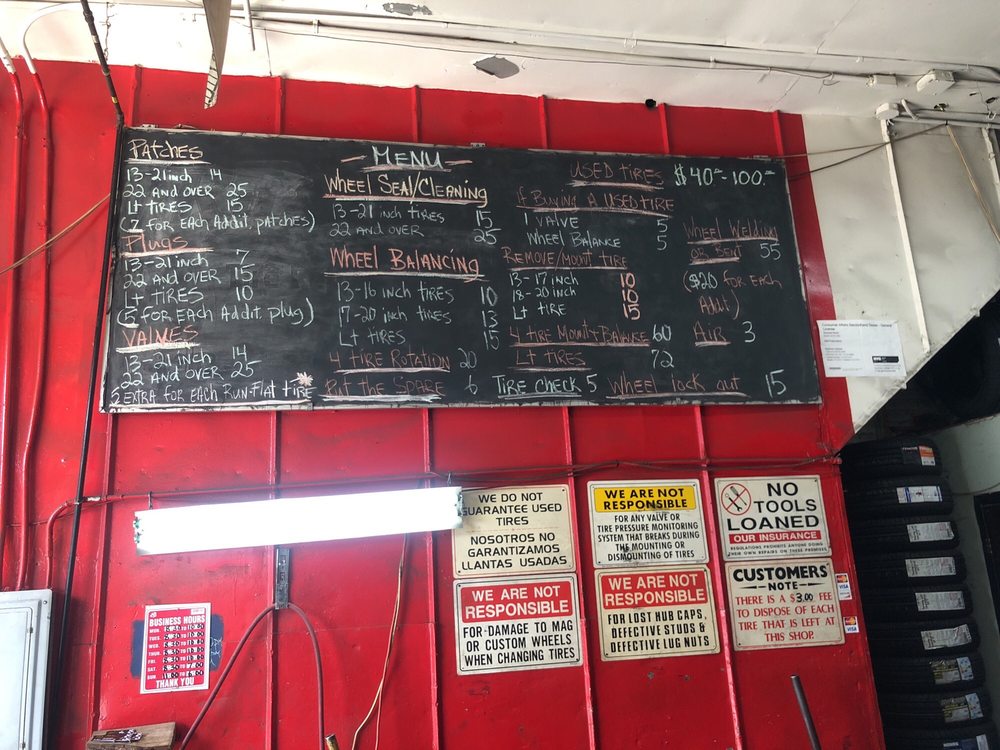 Patches
13-21 inch 14
22 and over 25
Lt tires 15
(7 for each addit. patches)
Plugs
13-21 inch 7
22 and over 15
Lt tires 10
(5 for each addit. plug)
VALVES
13-21 inch 14
22 and over 25
2 extra for each run-flat tire
- MENU -
Wheel Seal/Cleaning
13-21 inch tires 15
22 and over 25
Wheel Balancing
13-16 inch tires 10
17-20 inch tires 13
Lt tires 15
4 tire Rotation 20
Put the Spare 6
Used tires $40.- - 100.-
If Buying A Used tire
1 valve 5
Wheel Balance 5
Remove/Mount tire
13-17 inch 10
18-20 inch 10
Lt tire 15
4 tire Mount+Balance 60
Lt tires 72
Tire check 5
Wheel lock out 15
Wheel Welding
or Bent 55
($20 for each
Addit.)
Air 3
WE DO NOT
GUARANTEE USED
TIRES
NOSOTROS NO
GARANTIZAMOS
LLANTAS USADAS
WE ARE NOT
RESPONSIBLE
FOR ANY VALVE OR
TIRE PRESSURE MONITORING
SYSTEM THAT BREAKS DURING
THE MOUNTING OR
DISMOUNTING OF TIRES
NO
TOOLS
LOANED
OUR INSURANCE
REGULATIONS PROHIBITS ANYONE DOING
THEIR OWN REPAIRS ON THESE PREMISES
WE ARE NOT
RESPONSIBLE
FOR DAMAGE TO MAG
OR CUSTOM WHEELS
WHEN CHANGING TIRES
WE ARE NOT
RESPONSIBLE
FOR LOST HUB CAPS,
DEFECTIVE STUDS &
DEFECTIVE LUG NUTS
CUSTOMERS
NOTE
THERE IS A $3.00 FEE
TO DISPOSE OF EACH
TIRE THAT IS LEFT AT
THIS SHOP.
VISA
VISA
BUSINESS HOURS
MON.
TUES.
WED.
THUR.
FRI.
SAT.
SUN.
THANK YOU